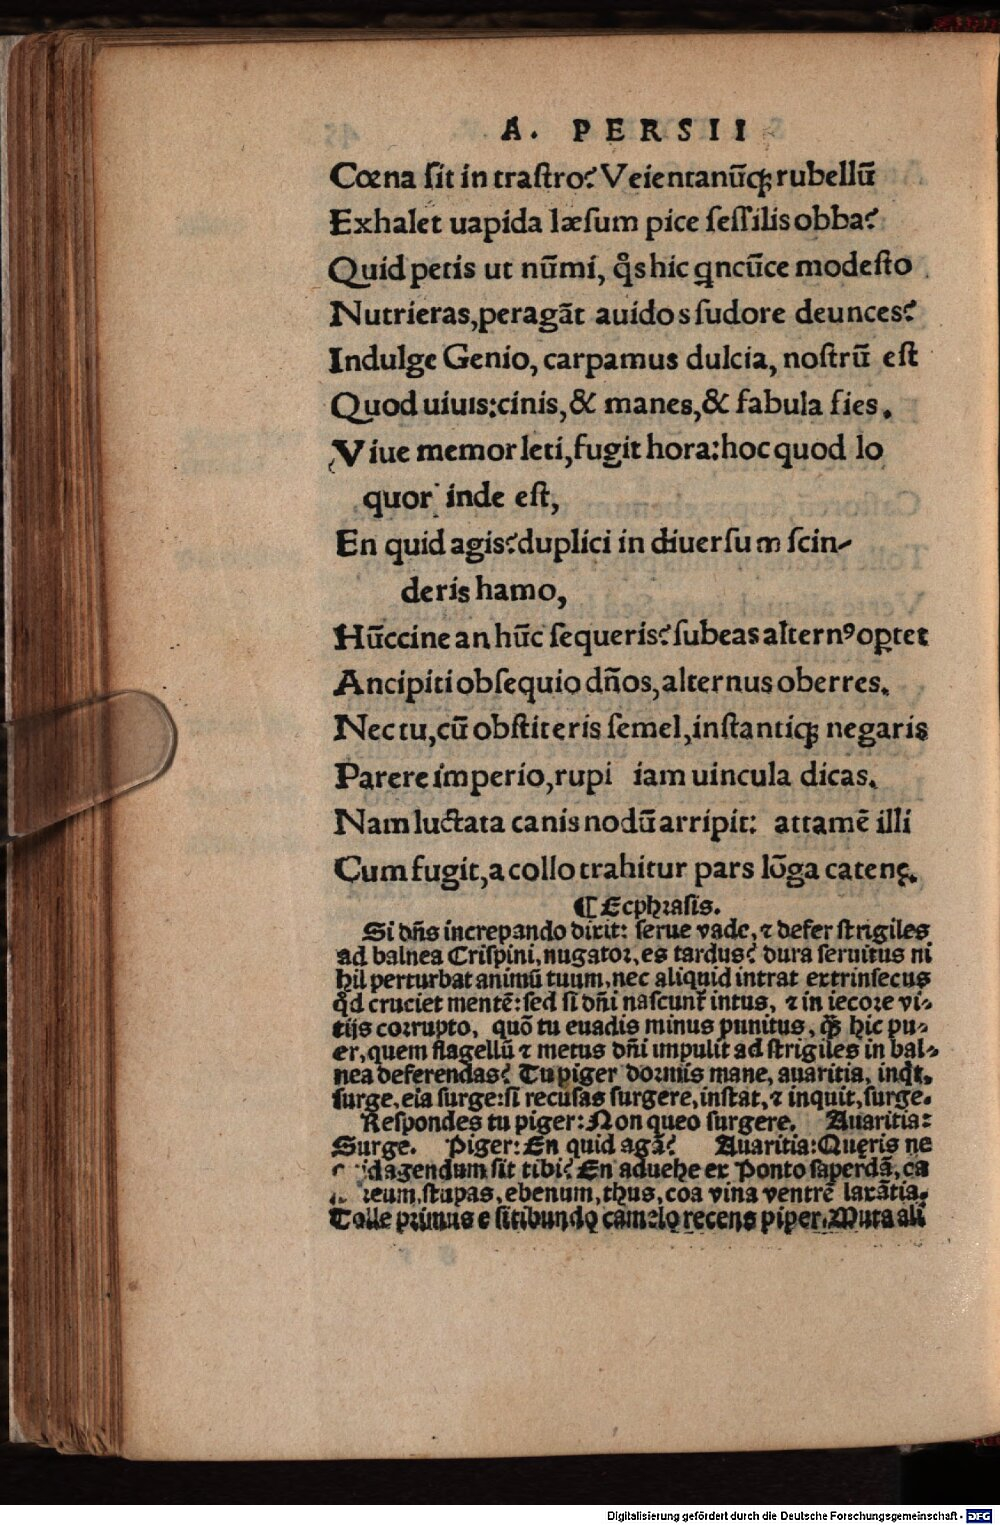 A. PERSII
Cœna sit in trastro? Veientanūq; rubellū
Exhalet uapida læsum pice sessilis obba?
Quid petis ut nūmi, q̊s hic q̃ncūce modesto
Nutrieras, peragāt auidos sudore deunces?
Indulge Genio, carpamus dulcia, nostrū est
Quod uiuis: cinis, & manes, & fabula fies.
Viue memor leti, fugit hora: hoc quod lo
quor inde est,
En quid agis? duplici in diuersum scin-
deris hamo,
Hūccine an hūc sequeris? subeas alternꝰ oꝑtet
Ancipiti obsequio dños, alternus oberres.
Nec tu, cū obstiteris semel, instantiq; negaris
Parere imperio, rupi iam uincula dicas.
Nam luctata canis nodū arripit: attamē illi
Cum fugit, a collo trahitur pars lōga catenę.
¶ Ecphrasis.
Si dñs increpando dixit: serue vade, ⁊ defer strigiles
ad balnea Crispini, nugator, es tardus? dura seruitus ni
hil perturbat animū tuum, nec aliquid intrat extrinsecus
qd̓ cruciet mentē: sed si dñi nascunt̃ intus, ⁊ in iecore vi-
tijs corrupto, quō tu euadis minus punitus, q̃ꝫ hic pu-
er, quem flagellū ⁊ metus dñi impulit ad strigiles in bal-
nea deferendas? Tu piger dormis mane, auaritia, inqt,
surge, eia surge: si recusas surgere, instat, ⁊ inquit, surge.
Respondes tu piger: Non queo surgere. Auaritia:
Surge. Piger: En quid agā? Auaritia: Quęris ne
agendum sit tibi? En aduehe ex Ponto saperdā, ca
stupas, ebenum, thus, coa vina ventrē laxātia.
Tolle primus e sitibundo camelo recens piper. Muta ali
Digitalisierung gefördert durch die Deutsche Forschungsgemeinschaft - DFG